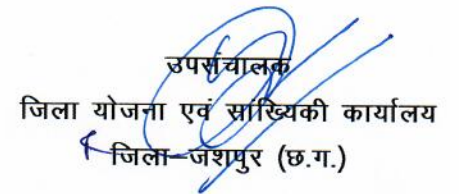 उपसंचालक
जिला योजना एवं सांख्यिकी कार्यालय
जिला-जशपुर (छ.ग.)